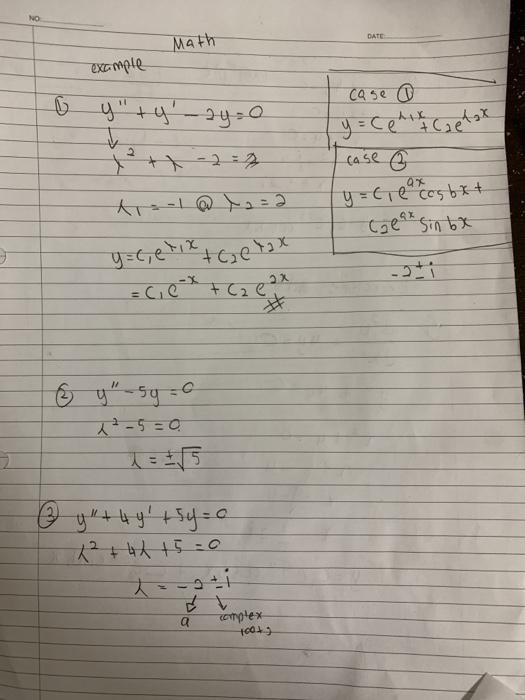 NO.
Math
DATE
example
① y'' + y' - 2y = 0
↓
λ² + λ - 2 = 2
λ₁ = -1 @ λ₂ = 2
y = C₁e^λ₁x + C₂e^λ₂x
= C₁e^-x + C₂e^2x
case ①
y = Ce^λ₁x + C₂e^λ₂x
case ②
y = C₁e^ax cos bx +
C₂e^ax sin bx
-2 ± i
② y'' - 5y = 0
λ² - 5 = 0
λ = ±√5
③ y'' + 4y' + 5y = 0
λ² + 4λ + 5 = 0
λ = -2 ± i
a complex